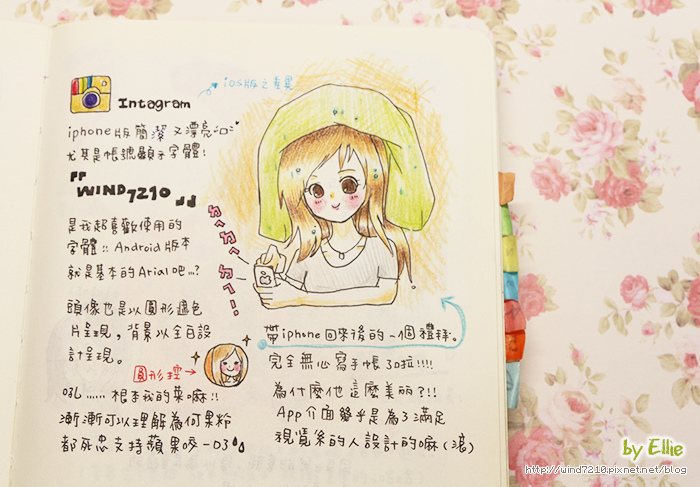 Intagram
iOS版之差異
iphone版簡潔又漂亮
尤其是帳號顯示字體!
『WIND7210』
是我超喜歡使用的
字體 :: Android版本
就是基本的Arial吧...?
頭像也是以圓形遮色
片呈現,背景以全白設
計呈現。
圓形控→
吼...... 根本我的菜嘛!!
漸漸可以理解為何果粉
都死忠支持蘋果啰 -03
ㄉㄟ ㄉㄟ ㄉㄟ!!
帶iphone回來後的一個禮拜。
完全無心寫手帳了啦!!!!
為什麼他這麼美丽?!!
App介面幾乎是為了滿足
視覺系的人設計的嘛(淚)
by Ellie
http://wind7210.pixnet.net/blog